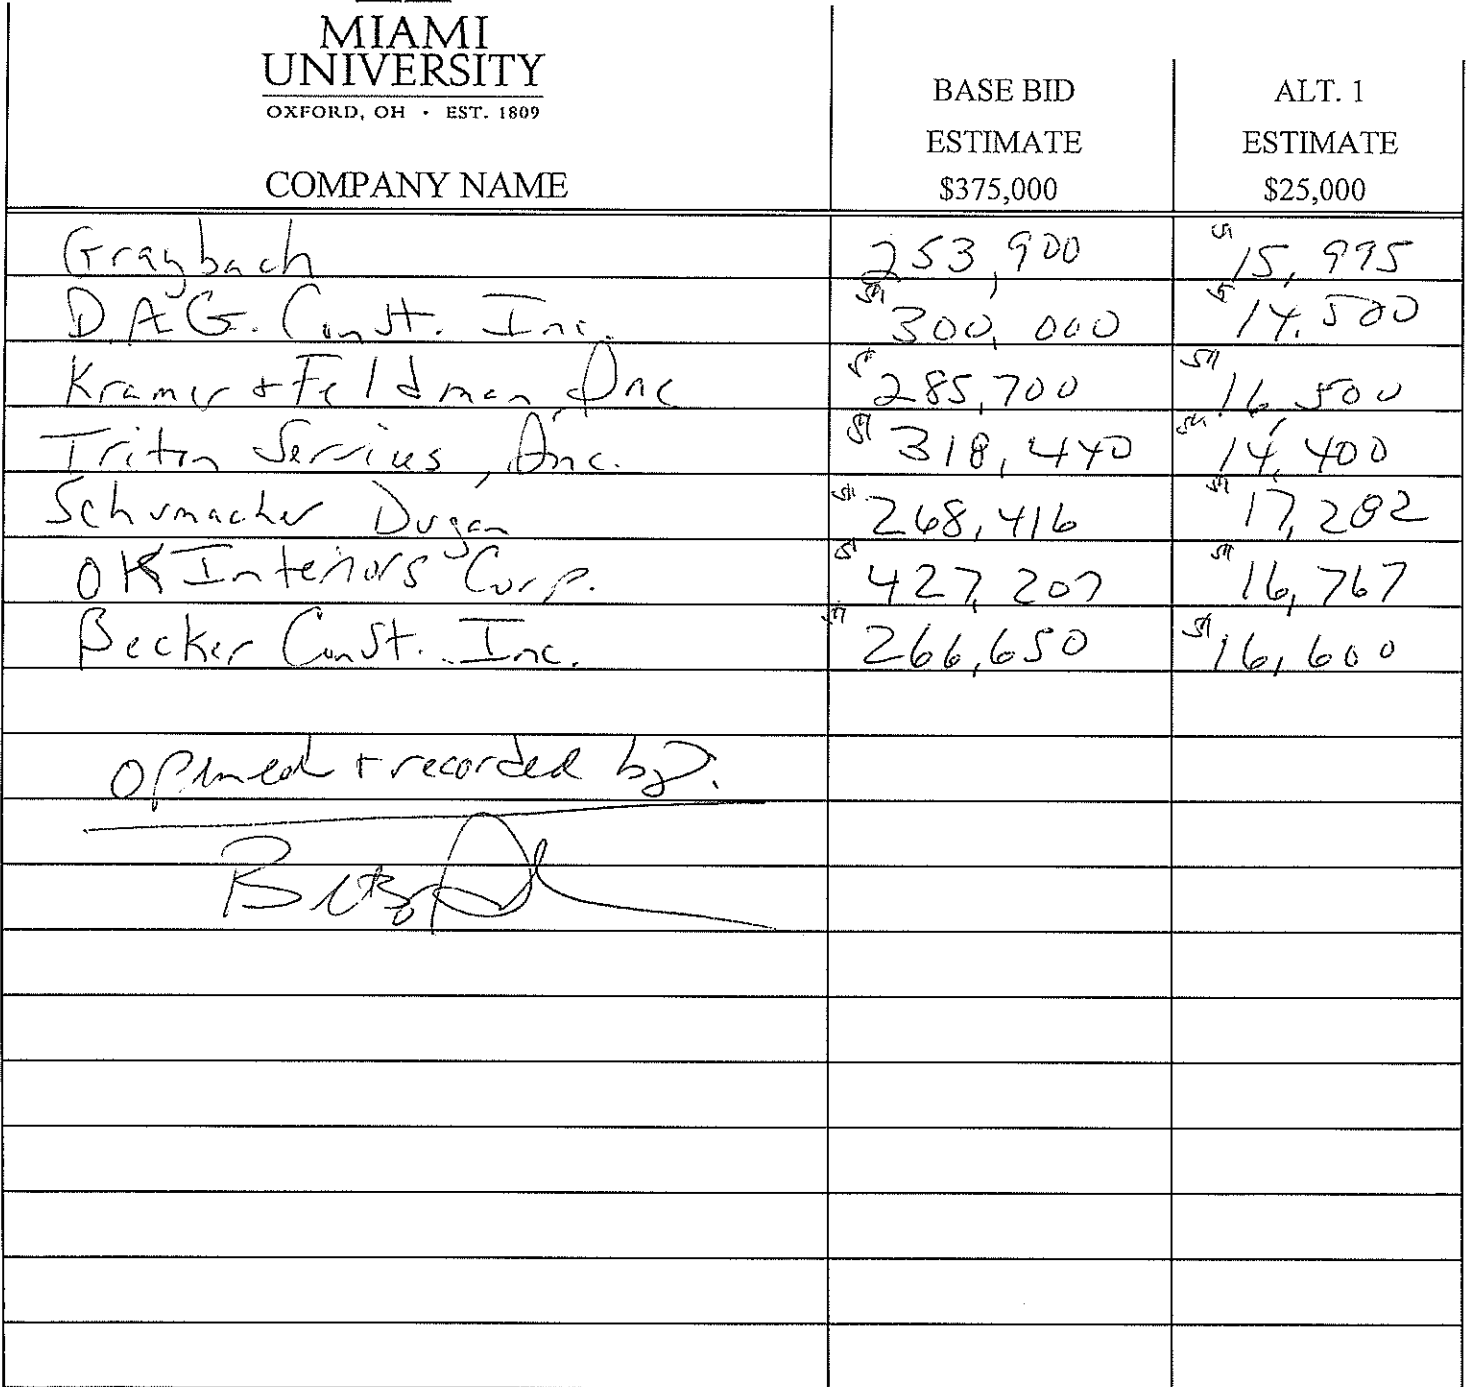 MIAMI
UNIVERSITY
OXFORD, OH · EST. 1809
COMPANY NAME
BASE BID
ESTIMATE
$375,000
ALT. 1
ESTIMATE
$25,000
Graybach 253,900 15,995
D.A.G. Const. Inc. $300,000 $14,500
Kramer + Feldman, Inc $285,700 $16,500
Triton Services, Inc. $318,440 $14,400
Schumacher Dugan $268,416 $17,282
OK Interiors Corp. $427,207 $16,767
Becker Const. Inc. $266,650 $16,600
opened + recorded by: